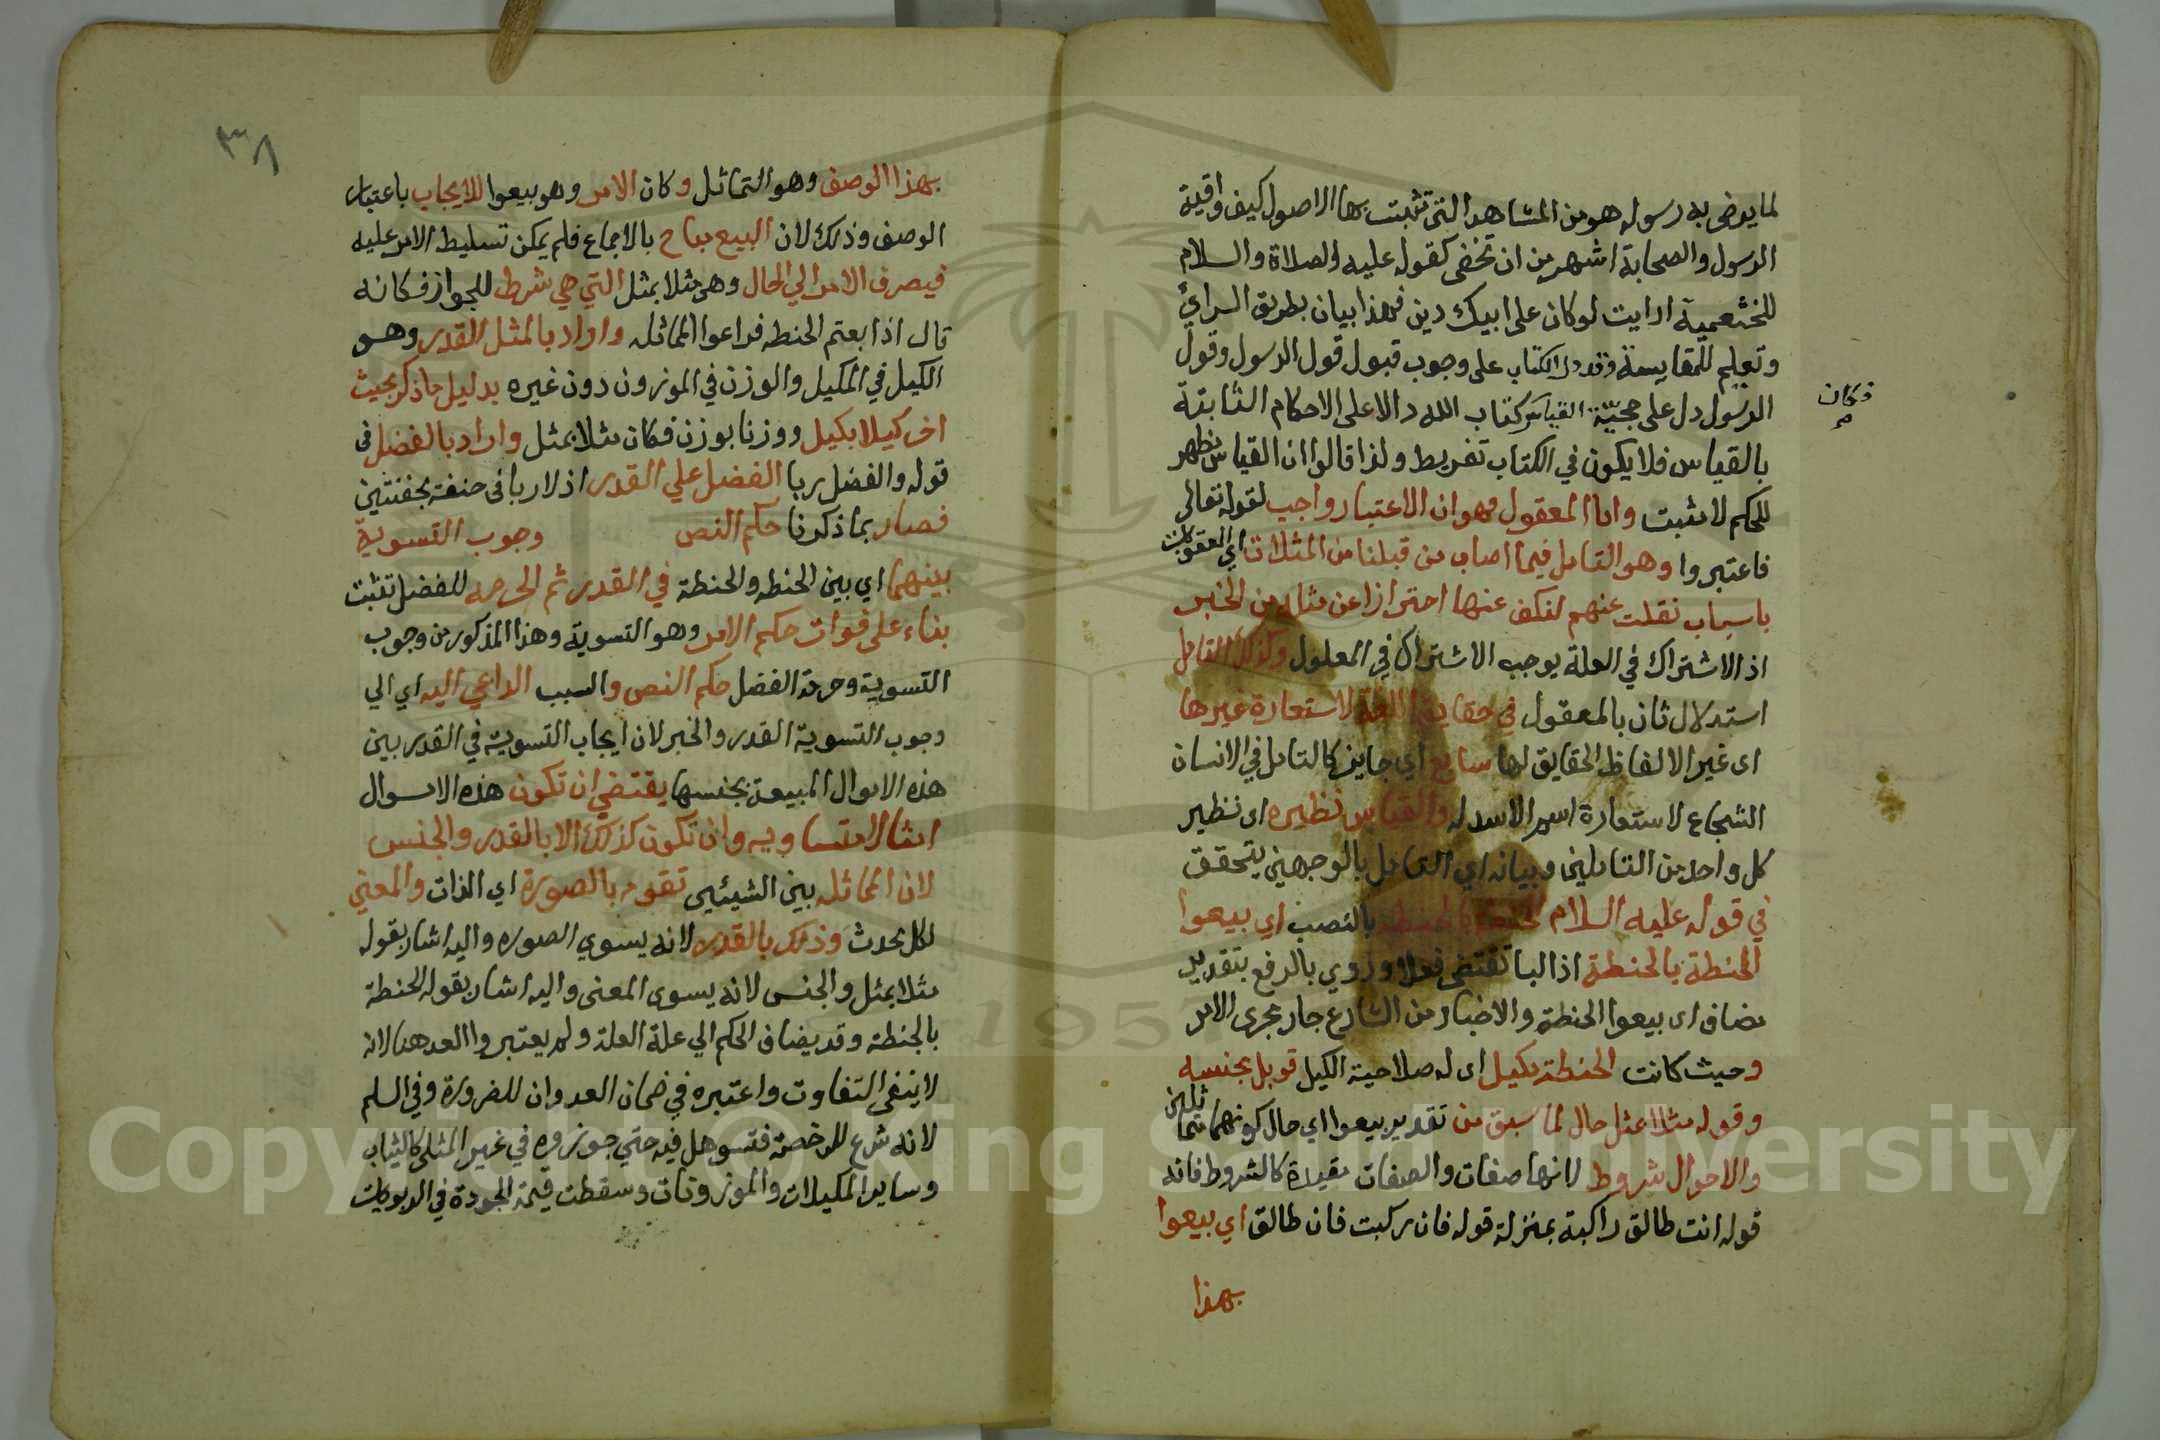 لما يرضى به رسوله هو من المشاهد التي تثبت بها الاصول كيف واقيسة
الرسول والصحابة اشهر من ان تخفى كقوله عليه الصلاة والسلام
للخثعمية ارايت لو كان على ابيك دين فهذا بيان بطريق الراي
وتعليم للمقايسة وقد دل الكتاب على وجوب قبول قول الرسول وقول
الرسول دل على حجيّة القياس كتاب الله دالا على الاحكام الثابتة
فكان
صح
بالقياس فلا يكون في الكتاب تفريط ولذا قالوا ان القياس مظهر
للحكم لا مثبت واما المعقول فهو ان الاعتبار واجب لقوله تعالى
فاعتبروا وهو التامل فيما اصاب من قبلنا من المثلات اي العقوبات
باسباب نقلت عنهم لنكف عنها احترازا عن مثله من الخبر
اذ الاشتراك في العلة يوجب الاشتراك في المعلول وكذلك التامل
استدلال ثان بالمعقول في حقايق اللغة لاستعارة غيرها
اى غير الالفاظ الحقايق لها سايغ اي جايز كالتامل في الانسان
الشجاع لاستعارة اسم الاسد له والقياس نظيره اى نظير
كل واحد من التاملين وبيانه اي التامل بالوجهين يتحقق
في قوله عليه السلام الحنطة بالحنطة بالنصب اي بيعوا
الحنطة بالحنطة اذ البا تقتضى فعلا وروي بالرفع بتقدير
مضاف اى بيعوا الحنطة والاخبار من الشارع جار مجرى الامر
وحيث كانت الحنطة مكيل اى له صلاحية الكيل قوبل بجنسه
وقوله مثلا بمثل حال لما سبق من تقدير بيعوا اي حال كونهما متماثلين
والاحوال شروط لانها صفات والصفات مقيدة كالشروط فانه
قوله انت طالق راكبة بمنزلة قوله فان ركبت فان طالق اي بيعوا
بهذا
٣٨
بهذا الوصف وهو التماثل وكان الامر وهو بيعوا للايجاب باعتبار
الوصف وذلك لان البيع مباح بالاجماع فلم يمكن تسليط الامر عليه
فيصرف الامر الي الحال وهي مثلا بمثل التي هي شرط للجواز فكانه
قال اذا بعتم الحنطه فراعوا المماثله واراد بالمثل القدر وهو
الكيل في المكيل والوزن في الموزون دون غيره بدليل ما ذكر بحيث
اخر كيلا بكيل ووزنا بوزن فكان مثلا بمثل واراد بالفضل فى
قوله والفضل ربا الفضل علي القدر اذ لا ربا فى حفنة بحفنتين
فصار بما ذكرنا حكم النص وجوب التسوية
بينهما اي بين الحنطه والحنطة في القدر ثم الحرمه للفضل تثبت
بناء على فوات حكم الامر وهو التسوية وهذا المذكور من وجوب
التسوية وحرمة الفضل حكم النص والسبب الداعي اليه اي الي
وجوب التسوية القدر والخبر لان ايجاب التسوية في القدر بين
هذه الاموال المبيعة بجنسها يقتضي ان تكون هذه الاموال
امثالا متساويه وان تكون كذلك الا بالقدر والجنس
لان المماثله بين الشيئين تقوم بالصورة اي الذات والمعني
لكل محدث وذلك بالقدر لانه يسوي الصوره واليه اشار بقوله
مثلا بمثل والجنس لانه يسوى المعنى واليه اشار بقوله الحنطة
بالحنطة وقد يضاف الحكم الي علة العلة ولم يعتبروا العد هنا لانه
لا ينفى التفاوت واعتبره في ضمان العدوان للضرورة وفي السلم
لانه شرع للرخصة فتسوهل فيه حتي جوزوه في غير المثلى كالثياب
وساير المكيلات والموزونات وسقطت قيمة الجودة في الربويات
Copyright © King Saud University
1957